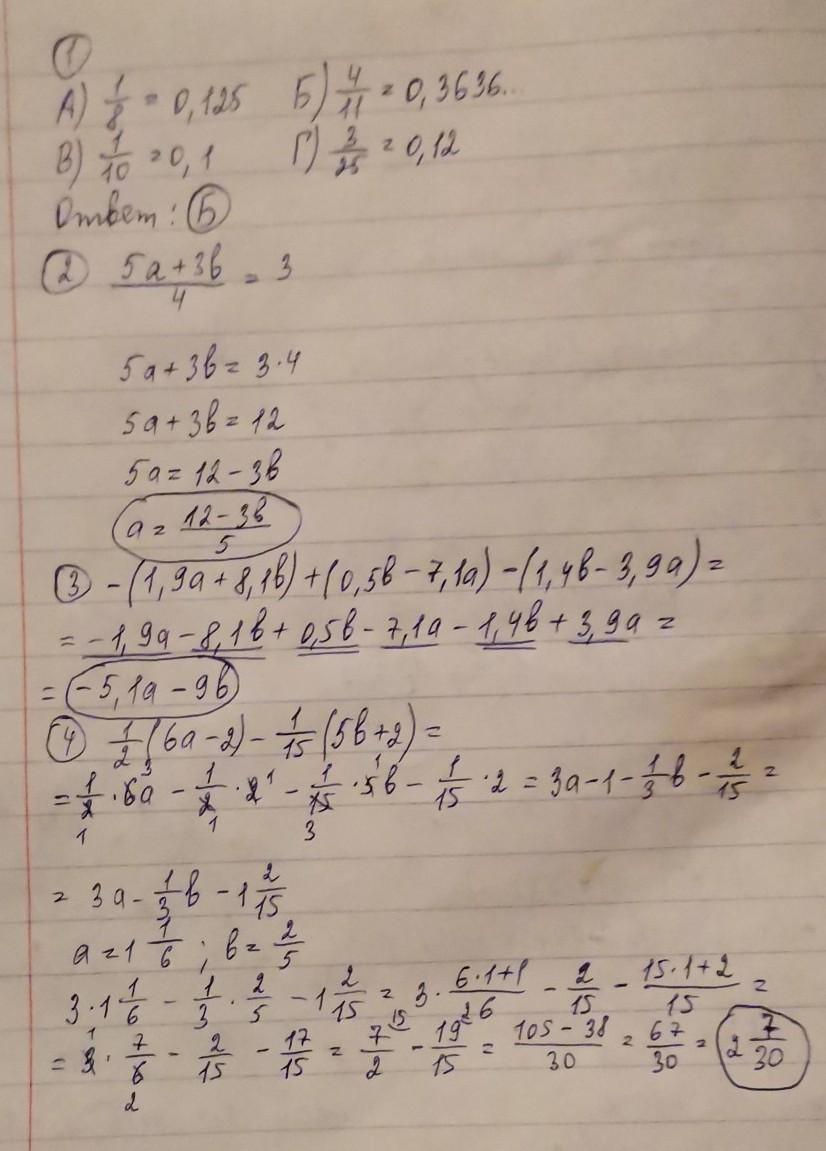 ①
А) 1/8 = 0,125 Б) 4/11 = 0,3636...
В) 1/10 = 0,1 Г) 3/25 = 0,12
Ответ: Б
② (5a+3b)/4 = 3
5a+3b = 3·4
5a+3b = 12
5a = 12-3b
a = (12-3b)/5
③ -(1,9a+8,1b)+(0,5b-7,1a)-(1,4b-3,9a)=
= -1,9a-8,1b+0,5b-7,1a-1,4b+3,9a =
= -5,1a-9b
④ 1/2(6a-2)-1/15(5b+2)=
= 1/2·6a - 1/2·2 - 1/15·5b - 1/15·2 = 3a-1-1/3b-2/15 =
= 3a-1/3b-1 2/15
a = 1 1/6 ; b = 2/5
3·1 1/6 - 1/3·2/5 - 1 2/15 = 3·(6·1+1)/6 - 2/15 - (15·1+2)/15 =
= 3·7/6 - 2/15 - 17/15 = 7/2 - 19/15 = (105-38)/30 = 67/30 = 2 7/30